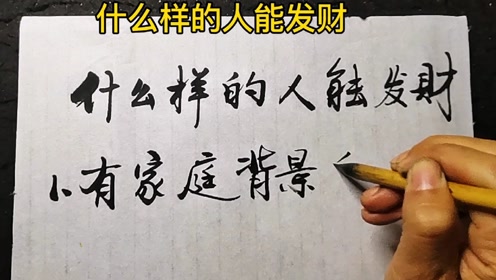 什么样的人能发财
什么样的人能发财
1、有家庭背景